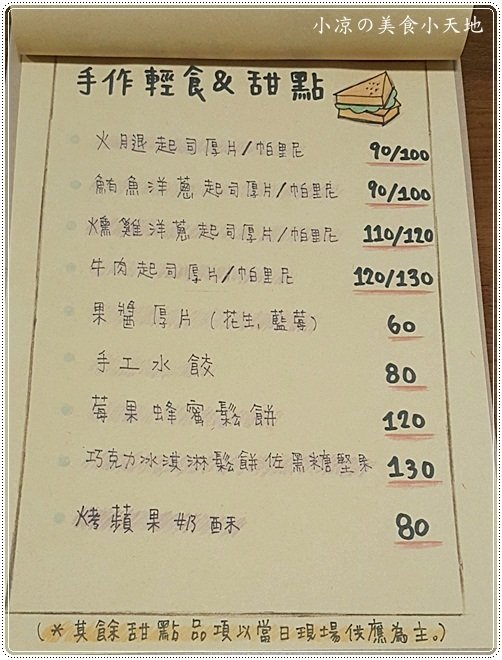 小凉の美食小天地
手作輕食&甜點
火腿起司厚片/帕里尼 90/100
鮪魚洋蔥起司厚片/帕里尼 90/100
燻雞洋蔥起司厚片/帕里尼 110/120
牛肉起司厚片/帕里尼 120/130
果醬厚片(花生,藍莓) 60
手工水餃 80
莓果蜂蜜鬆餅 120
巧克力冰淇淋鬆餅佐黑糖堅果 130
烤蘋果奶酥 80
(*其餘甜點品項以當日現場供應為主。)